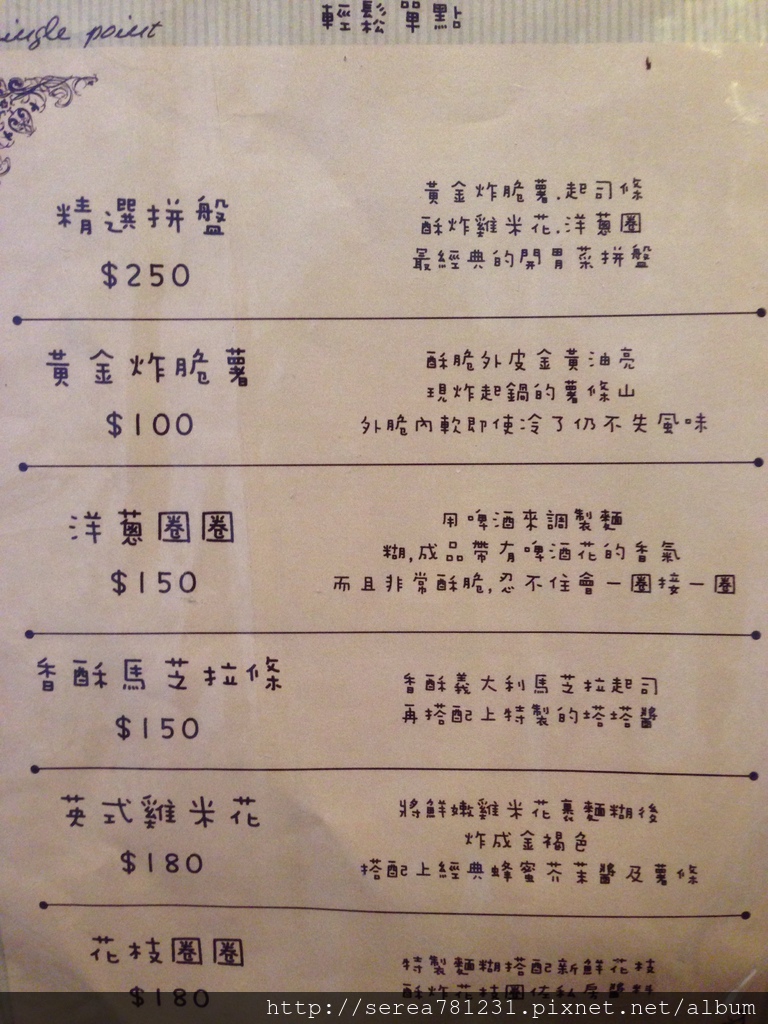 輕鬆單點
ingle point
精選拼盤
$250
黃金炸脆薯.起司條
酥炸雞米花.洋蔥圈
最經典的開胃菜拼盤
黃金炸脆薯
$100
酥脆外皮金黃油亮
現炸起鍋的薯條山
外脆內軟即使冷了仍不失風味
洋蔥圈圈
$150
用啤酒來調製麵
糊,成品帶有啤酒花的香氣
而且非常酥脆,忍不住會一圈接一圈
香酥馬芝拉條
$150
香酥義大利馬芝拉起司
再搭配上特製的塔塔醬
英式雞米花
$180
將鮮嫩雞米花裹麵糊後
炸成金褐色
搭配上經典蜂蜜芥茉醬及薯條
花枝圈圈
$180
特製麵糊搭配新鮮花枝
酥炸花枝圈佐私房醬料
http://serea781231.pixnet.net/album